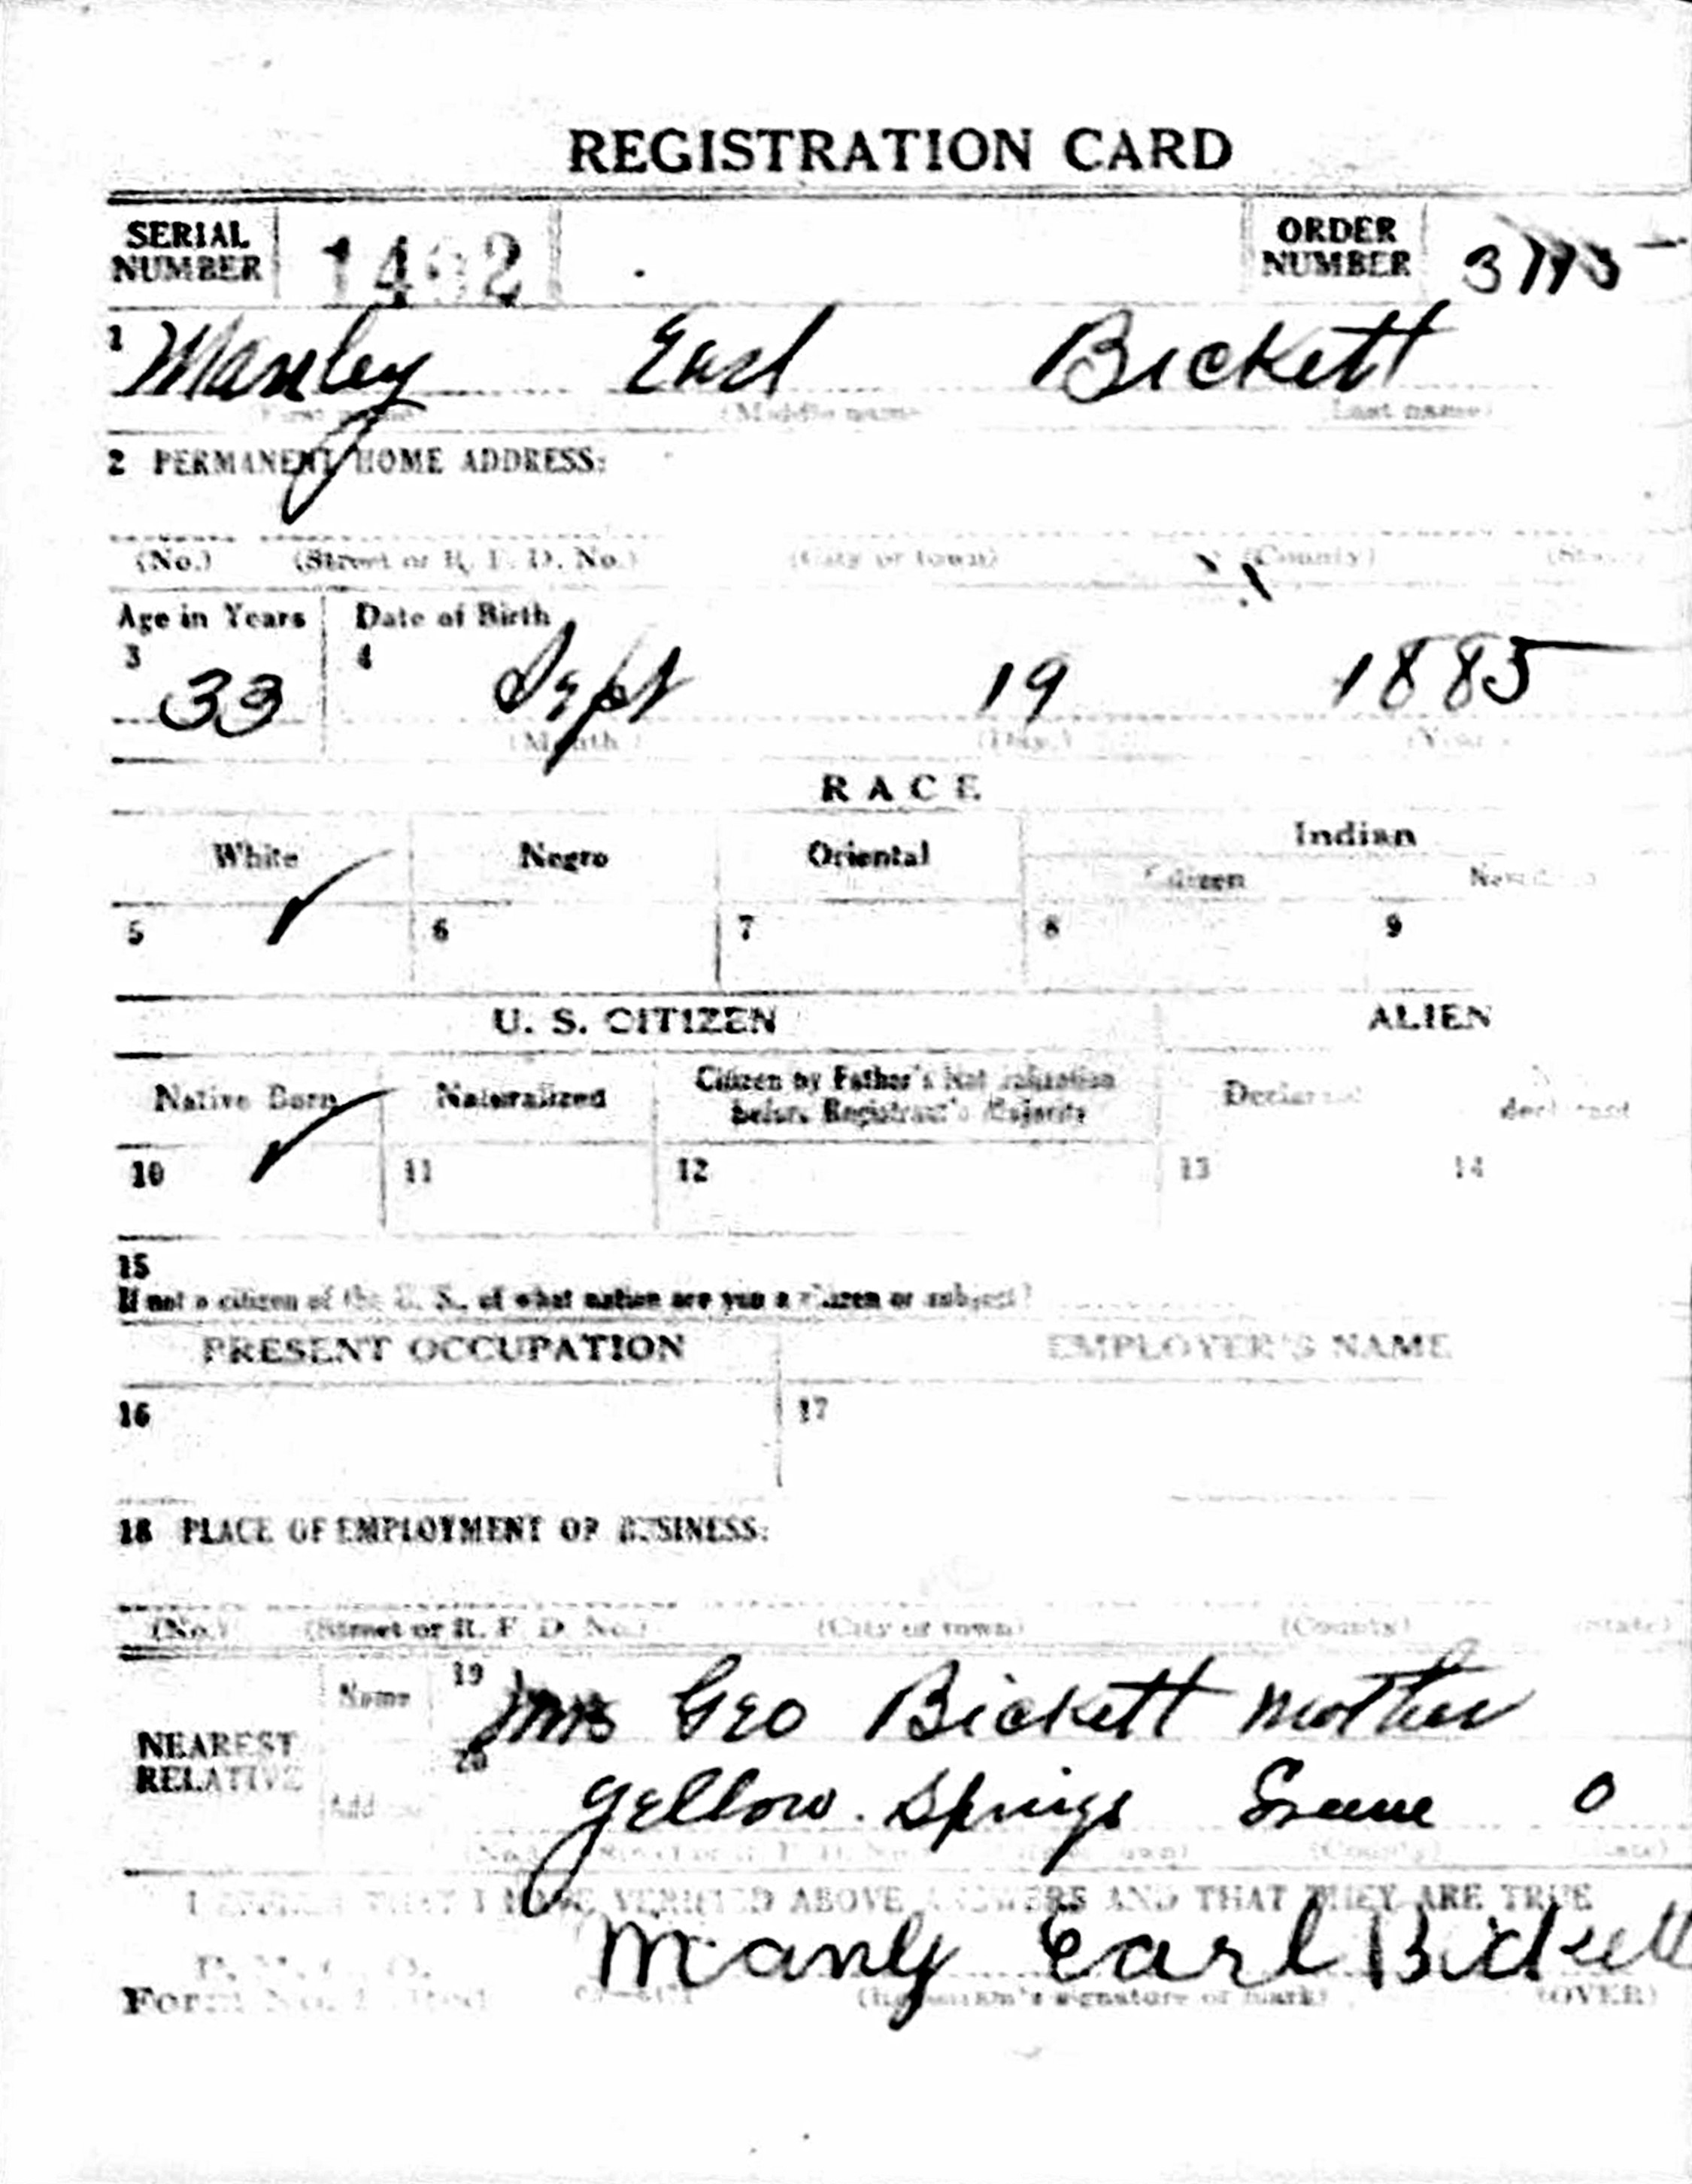 REGISTRATION CARD
SERIAL NUMBER
ORDER NUMBER
1 Manley Earl Bickett
(First name) (Middle name) (Last name)
2 PERMANENT HOME ADDRESS:
(No.) (Street or R. F. D. No.) (City or town) (County) (State)
Age in Years Date of Birth
3 33 4 Sept 19 1885
(Month) (Day) (Year)
RACE
White Negro Oriental Indian
Citizen
5 ✓ 6 7 8 9
U. S. CITIZEN ALIEN
Native Born Naturalized Citizen by Father's Naturalization before Registrant's Majority
10 ✓ 11 12 13 14
15
If not a citizen of the U. S., of what nation are you a citizen or subject?
PRESENT OCCUPATION EMPLOYER'S NAME
16 17
18 PLACE OF EMPLOYMENT OR BUSINESS:
(No.) (Street or R. F. D. No.) (City or town) (County) (State)
NEAREST RELATIVE
Name 19 Mrs Geo Bickett Mother
Address 20 Yellow Springs Greene O
I AFFIRM THAT I HAVE VERIFIED ABOVE ANSWERS AND THAT THEY ARE TRUE
Manly Earl Bickett
(Registrant's signature or mark) (OVER)